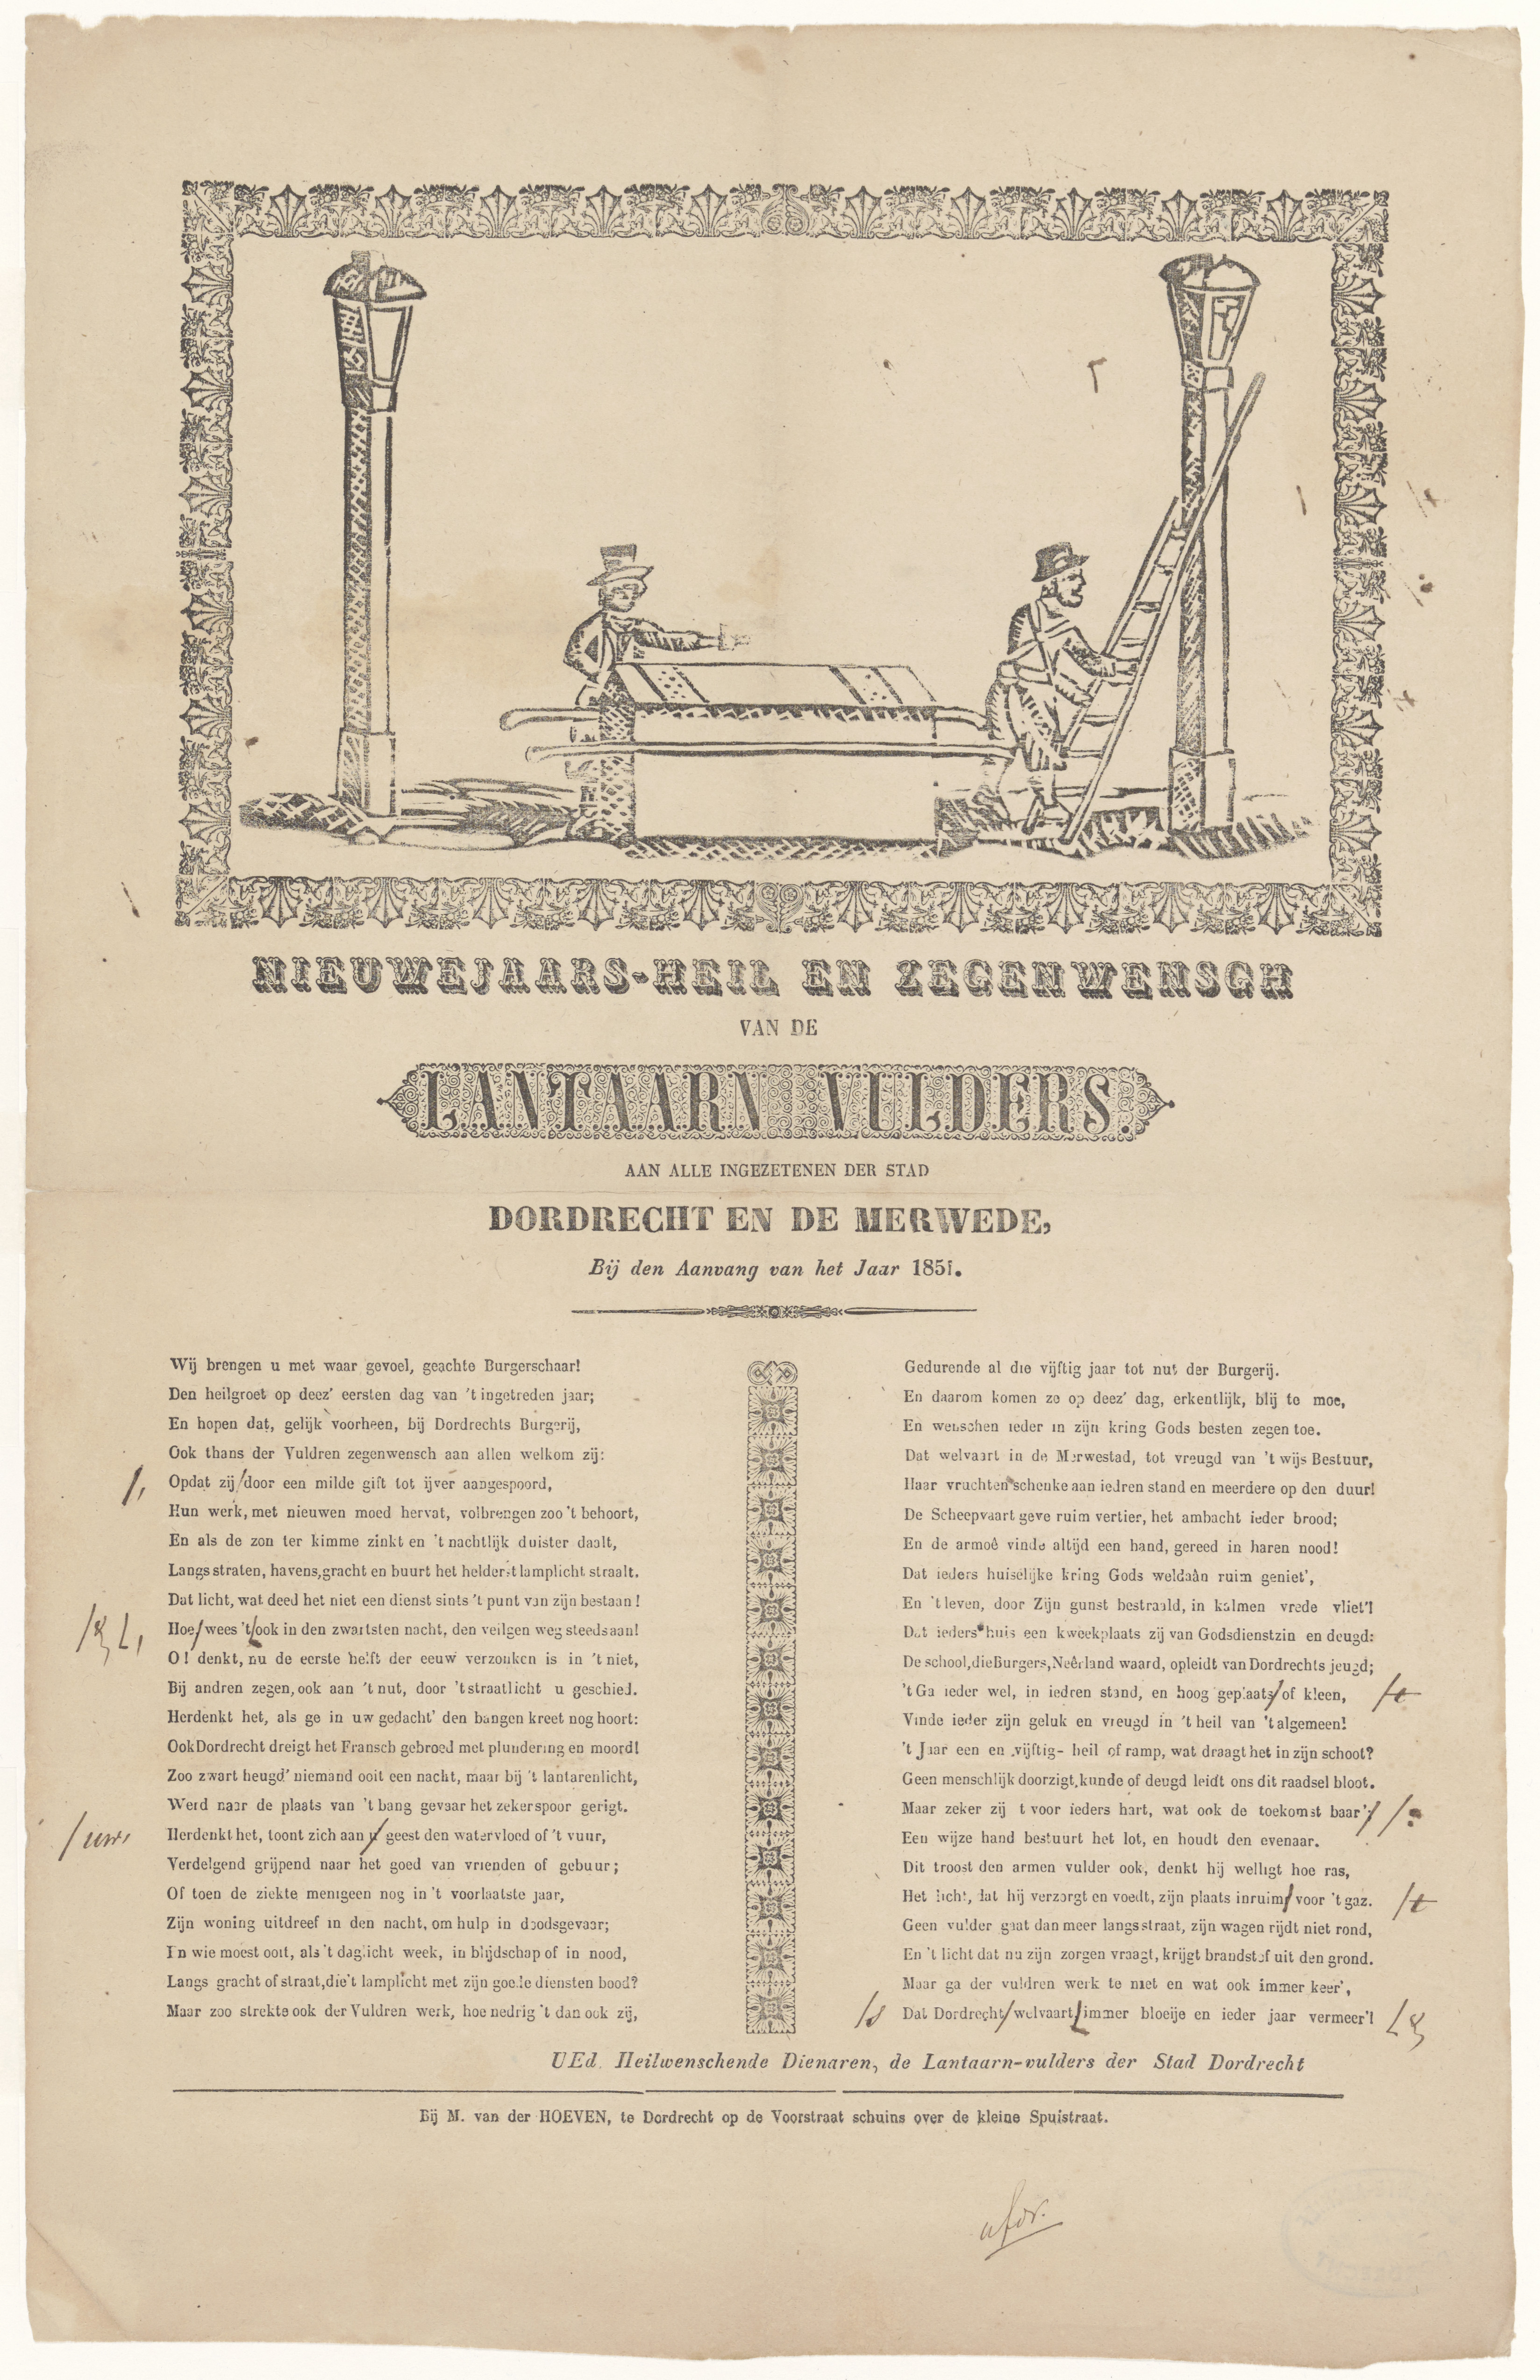 NIEUWEJAARS-HEIL EN ZEGENWENSCH
VAN DE
LANTAARN VULDERS.
AAN ALLE INGEZETENEN DER STAD
DORDRECHT EN DE MERWEDE,
Bij den Aanvang van het Jaar 1851.
Wij brengen u met waar gevoel, geachte Burgerschaar!
Den heilgroet op deez' eersten dag van 't ingetreden jaar;
En hopen dat, gelijk voorheen, bij Dordrechts Burgerij,
Ook thans der Vuldren zegenwensch aan allen welkom zij:
Opdat zij door een milde gift tot ijver aangespoord,
Hun werk, met nieuwen moed hervat, volbrengen zoo 't behoort,
En als de zon ter kimme zinkt en 't nachtlijk duister daalt,
Langs straten, havens, gracht en buurt het helderst lamplicht straalt.
Dat licht, wat deed het niet een dienst sints 't punt van zijn bestaan!
Hoe wees 't ook in den zwartsten nacht, den veilgen weg steeds aan!
O! denkt, nu de eerste helft der eeuw verzonken is in 't niet,
Bij andren zegen, ook aan 't nut, door 't straatlicht u geschied.
Herdenkt het, als ge in uw gedacht' den bangen kreet nog hoort:
Ook Dordrecht dreigt het Fransch gebroed met plundering en moord!
Zoo zwart heugd' niemand ooit een nacht, maar bij 't lantarenlicht,
Werd naar de plaats van 't bang gevaar het zeker spoor gerigt.
Herdenkt het, toont zich aan u geest den watervloed of 't vuur,
Verdelgend grijpend naar het goed van vrienden of gebuur;
Of toen de ziekte menigeen nog in 't voorlaatste jaar,
Zijn woning uitdreef in den nacht, om hulp in doodsgevaar;
In wie moest ooit, als 't daglicht week, in blijdschap of in nood,
Langs gracht of straat, die 't lamplicht met zijn goede diensten bood?
Maar zoo strekte ook der Vuldren werk, hoe nedrig 't dan ook zij,
Gedurende al die vijftig jaar tot nut der Burgerij.
En daarom komen ze op deez' dag, erkentlijk, blij te moe,
En wenschen ieder in zijn kring Gods besten zegen toe.
Dat welvaart in de Merwestad, tot vreugd van 't wijs Bestuur,
Haar vruchten schenke aan iedren stand en meerdere op den duur!
De Scheepvaart geve ruim vertier, het ambacht ieder brood;
En de armoê vinde altijd een hand, gereed in haren nood!
Dat ieders huiselijke kring Gods weldaân ruim geniet',
En 't leven, door Zijn gunst bestraald, in kalmen vrede vliet'!
Dat ieders huis een kweekplaats zij van Godsdienstzin en deugd:
De school, die Burgers, Neêrland waard, opleidt van Dordrechts jeugd;
't Ga ieder wel, in iedren stand, en hoog geplaats of kleen, /t
Vinde ieder zijn geluk en vreugd in 't heil van 't algemeen!
't Jaar een en vijftig- heil of ramp, wat draagt het in zijn schoot?
Geen menschlijk doorzigt, kunde of deugd leidt ons dit raadsel bloot.
Maar zeker zij t voor ieders hart, wat ook de toekomst baar'; /:
Een wijze hand bestuurt het lot, en houdt den evenaar.
Dit troost den armen vulder ook, denkt hij welligt hoe ras,
Het licht, dat hij verzorgt en voedt, zijn plaats inruim voor 't gaz. /t
Geen vulder gaat dan meer langs straat, zijn wagen rijdt niet rond,
En 't licht dat nu zijn zorgen vraagt, krijgt brandstof uit den grond.
Maar ga der vuldren werk te niet en wat ook immer keer',
/s Dat Dordrecht welvaart immer bloeije en ieder jaar vermeer'!
/,
/uw
UEd. Heilwenschende Dienaren, de Lantaarn-vulders der Stad Dordrecht
Bij M. van der HOEVEN, te Dordrecht op de Voorstraat schuins over de kleine Spuistraat.